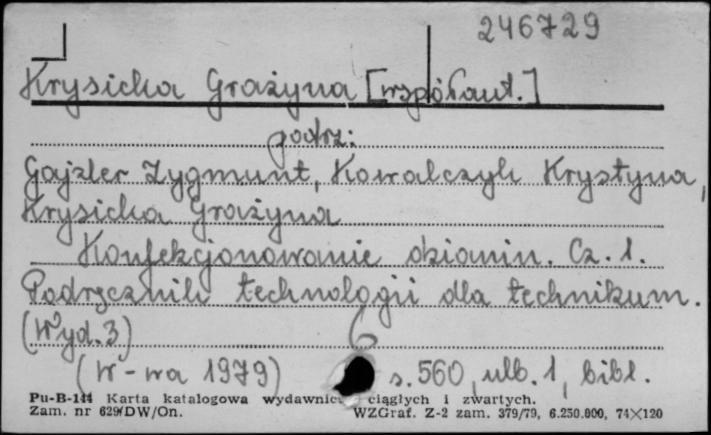 246729
Krysicka Grażyna [współaut.]
podrz:
Gajzler Zygmunt, Kowalczyk Krystyna,
Krysicka Grażyna
Konfekcjonowanie dzianin. Cz. 1.
Podręcznik technologii dla technikum.
(Wyd. 3)
(W-wa 1979) s. 560, ulb. 1, bibl.
Pu-B-144 Karta katalogowa wydawnictw ciągłych i zwartych.
Zam. nr 629/DW/On. WZGraf. Z-2 zam. 379/79, 6.250.000, 74×120